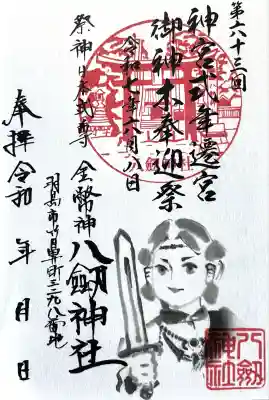 第六十三回
神宮式年遷宮
御神木奉迎祭
令和七年六月八日
祭神日本武尊
金幣神
八劔神社
羽島市竹鼻町三九八番地
奉拝令和 年 月 日
八劔
神社